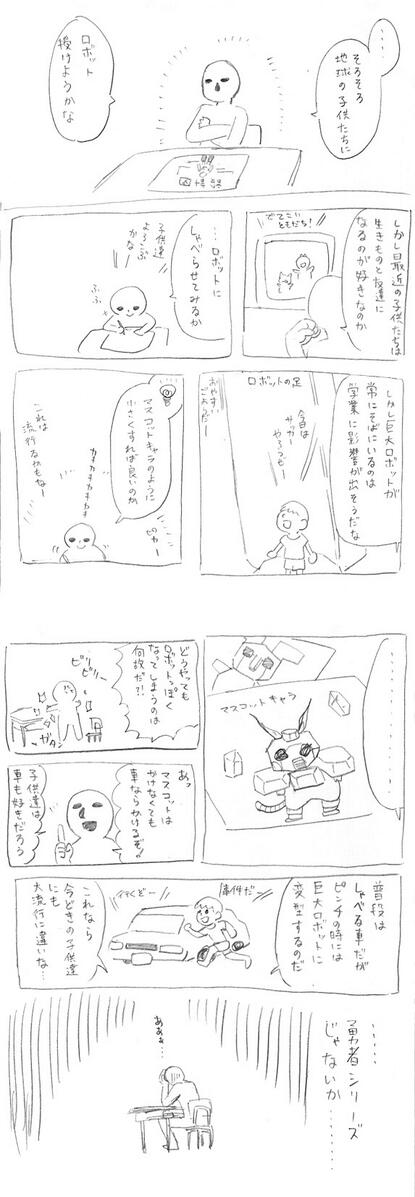 ……
そろそろ
地球の子供たちに
ロボット
授けようかな
しかし最近の子供たちは
生きものと友達に
なるのが好きなのか
でてこい
ともだち!
…ロボットに
しゃべらせてみるか
子供達
よろこぶ
かな
ふふ
しかし巨大ロボットが
常にそばにいるのは
学業に影響が出そうだな
ロボットの足
今日は
サッカー
やろうぜー
おやすい
ごようだー
マスコットキャラのように
小さくすれば良いのか
ピカー
カキカキカキカキ
これは
流行るぞー
…………
マスコットキャラ
どうやっても
ロボットっぽく
なってしまうのは
何故だ?!
ビリビリー
ガタン
あっ
マスコットは
かけなくても
車ならかけるぞ!
子供達は
車も好きだろう
普段は
しゃべる車だが
ピンチの時には
巨大ロボットに
変型するのだ
事件だー
行くぞー
これなら
今どきの子供達
にも
大流行に違いな…
……
勇者シリーズ
じゃないか……
ああぁ…